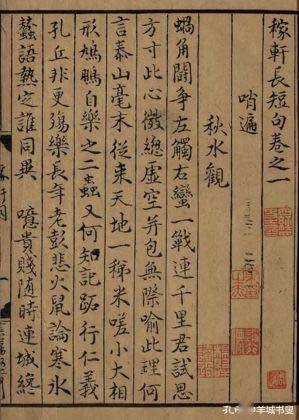 稼軒長短句卷之一
哨遍
秋水觀
蝸角鬭争左觸右蠻一戰連千里君試思
方寸此心微總虛空并包無際喻此理何
言泰山毫末從来天地一稊米嗟小大相
形鳩鵬自樂之二蟲又何知記跖行仁義
孔丘非更殤樂長年老彭悲火鼠論寒氷
蠶語熱定誰同異 噫貴賤随時連城縂
羊城书叟